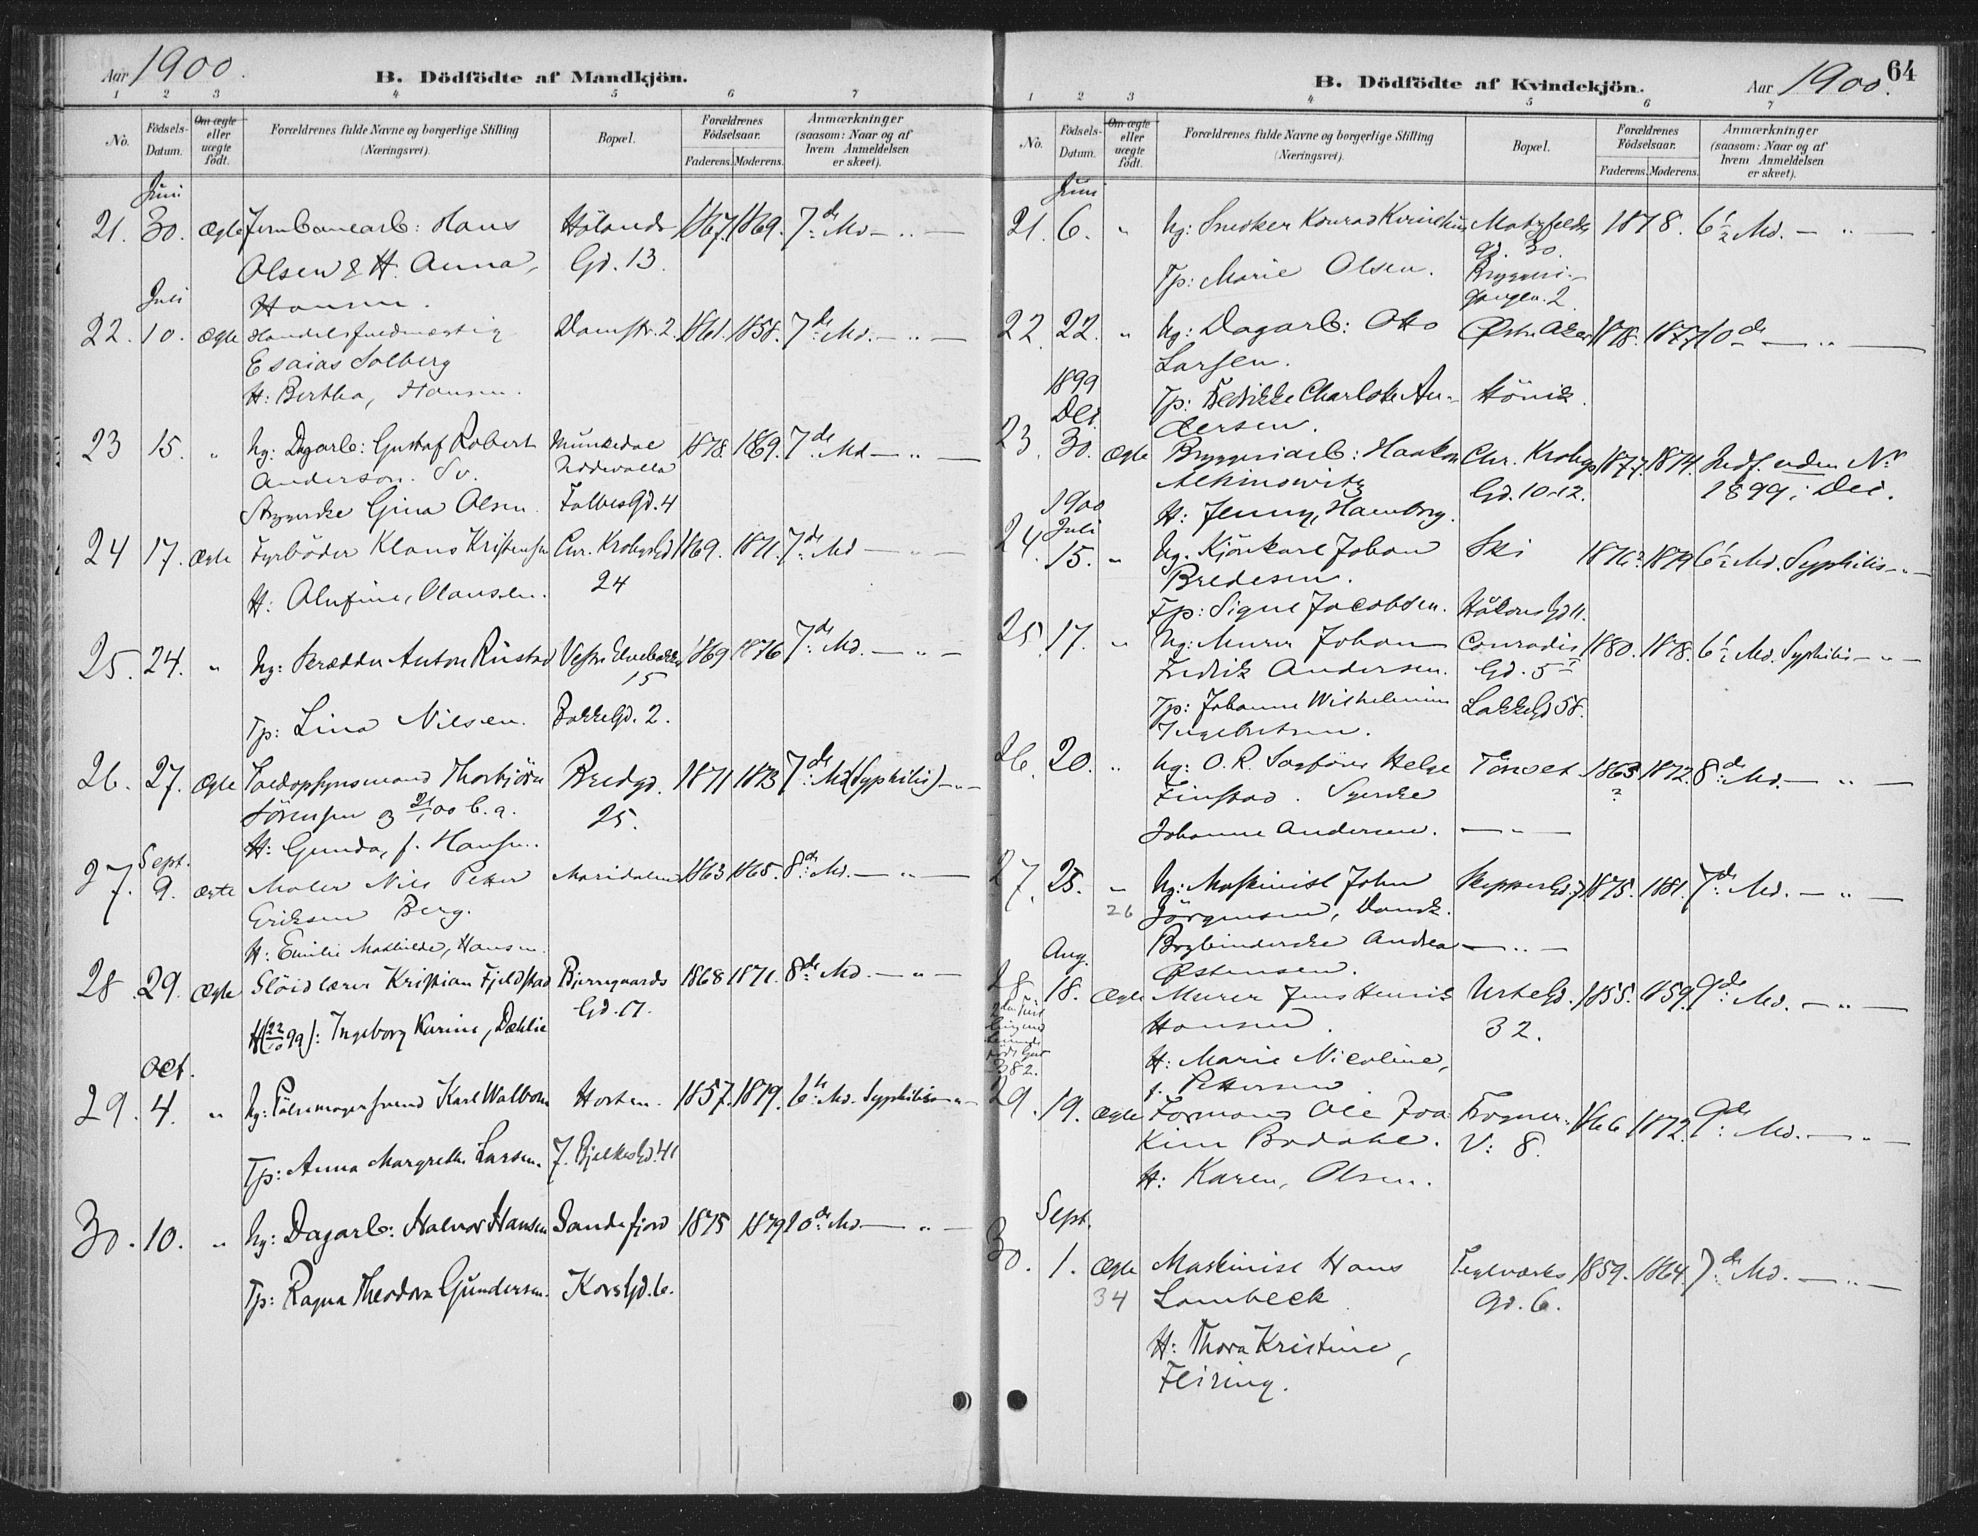 Aar 1900. B. Dödfödte af Mandkjön.
1 2 3 4 5 6 7
No. Födsels-Datum. Om ægte eller uægte födt. Forældrenes fulde Navne og borgerlige Stilling (Næringsvei). Bopæl. Forældrenes Födselsaar. Faderens. Moderens. Anmærkninger (saasom: Naar og af hvem Anmeldelsen er skeet).
Juni
21. 30. Ægte Jernbanearb: Hans Hölands 1867. 1869. 7de Md — „ —
Olsen & H. Anna, Gd. 13.
Hansen.
Juli
22. 10. Ægte Handelsfuldmægtig Damstr. 2. 1861. 1858. 7de Md. — „ —
Esaias Solberg
H: Bertha, Hansen.
23 15. „ Ug: Dagarb: Gustaf Robert Munkedal 1878. 1869. 7de Md — „ —
Anderson. Sv. Uddevalla
Gina Olsen. Falbes Gd. 4
24 17. Ægte Fyrböder Klaus Kristensen Chr. Krohgs Gd 1869. 1871. 7de Md — „ —
H: Alufine, Clausen. 24
25. 24. „ Ug: Skrædder Anton Rustad Vestre Elvebakke 1869 1876 7de Md. — „ —
15
Tp: Lina Nilsen. Bakke Gd. 2.
26. 27. Ægte Toldopsynsmand Thorbjörn Bredgd. 1871 1873 7de Md (Syphilis) — „ —
Sörensen og 21/1 00 b.a. 25.
H: Gunda, f. Hansen.
Sept.
27. 9. Ægte Maler Nils Petter Maridalen 1863 1865. 8de Md. — „ —
Eriksen Berg.
H: Emilie Mathilde, Hansen.
28 29. Ægte Slöidlærer Kristian Fjeldstad Bjerregaards 1868 1871. 8de Md. — „ —
Gd. 17.
H (22/10 99): Ingeborg Karine, Dæhlie
Oct.
29. 4. „ Ug: Pölsemagersvend Karl Walbom Horten. 1857. 1879. 6te Md. Syphilis — „ —
Tp: Anna Margrethe Larsen. J. Bjelkes Gd. 41
30. 10. „ Ug: Dagarb: Halvor Hansen Sandefjord 1875 1879 10de Md — „ —
Tp: Ragna Theodora Gundersen. Kors Gd. 6.
B. Dödfödte af Kvindekjön. Aar 1900. 64
1 2 3 4 5 6 7
No. Födsels-Datum. Om ægte eller uægte födt. Forældrenes fulde Navne og borgerlige Stilling (Næringsvei). Bopæl. Forældrenes Födselsaar. Faderens. Moderens. Anmærkninger (saasom: Naar og af hvem Anmeldelsen er skeet).
Juni
21. 6. „ Ug: Snedker Konrad 1878. 6½ Md. — „ —
gd. 30.
Tp: Marie Olsen. Bryggeri-
gangen. 2
22. 22. „ Ug: Dagarb: Otto Østre Aker 1878. 1877 10de — „ —
Larsen.
1899 Tp: Fredrikke Charlotte An- Hönik.
Dec. dersen.
23. 30. Ægte Bryggeriarb: Haakon Chr. Krohgs 1877. 1874. Indf. uden No
Gd. 10-12. 1899 i Dec.
1900 H: Jenny, Hamborg.
Juli
24. 15. „ Ug. Kjörekarl Johan Ski 1876? 1879 6½ Md. Syphilis — „ —
Bredesen.
Tp: Signe Jacobsen. Håkons Gd 11.
25 17. „ Ug: Murer Johan Conradis 1880. 1878. 6½ Md. Syphilis — „ —
Fredrik Andersen. Gd. 5
Tp: Johanne Wilhelmine Lakke Gd 58.
Ingebretsen.
26. 20. „ Ug: O.R. Sagförer Helge Tönset 1863 1872. 8de Md. — „ —
Finstad. Syerske ?
Johanne Andersen. — „ —
27. 25. „ Ug: Maskinist John Skipper Gd. 7 1875. 1881. 7de Md. — „
26 Jörgensen, Dansk.
Aug. Bogbinderske Andrea — „ —
Østensen.
28 18. Ægte Murer Jens Henrik Urte Gd. 1855. 1859. 9de Md. — „ —
Hansen. 32.
382. H: Marie Nicoline,
f. Pettersen
29. 19. Ægte Formand Ole Joa- Frogner- 1866 1872. 9de Md. — „ —
kim Brodahl. V: 8.
H: Karen, Olsen.
Sept.
30. 1. Ægte Maskinist Hans Teglværks 1859. 1864. 7de Md. — „ —
34 Lambeck gd. 6.
H: Thora Kristine,
Feiring.